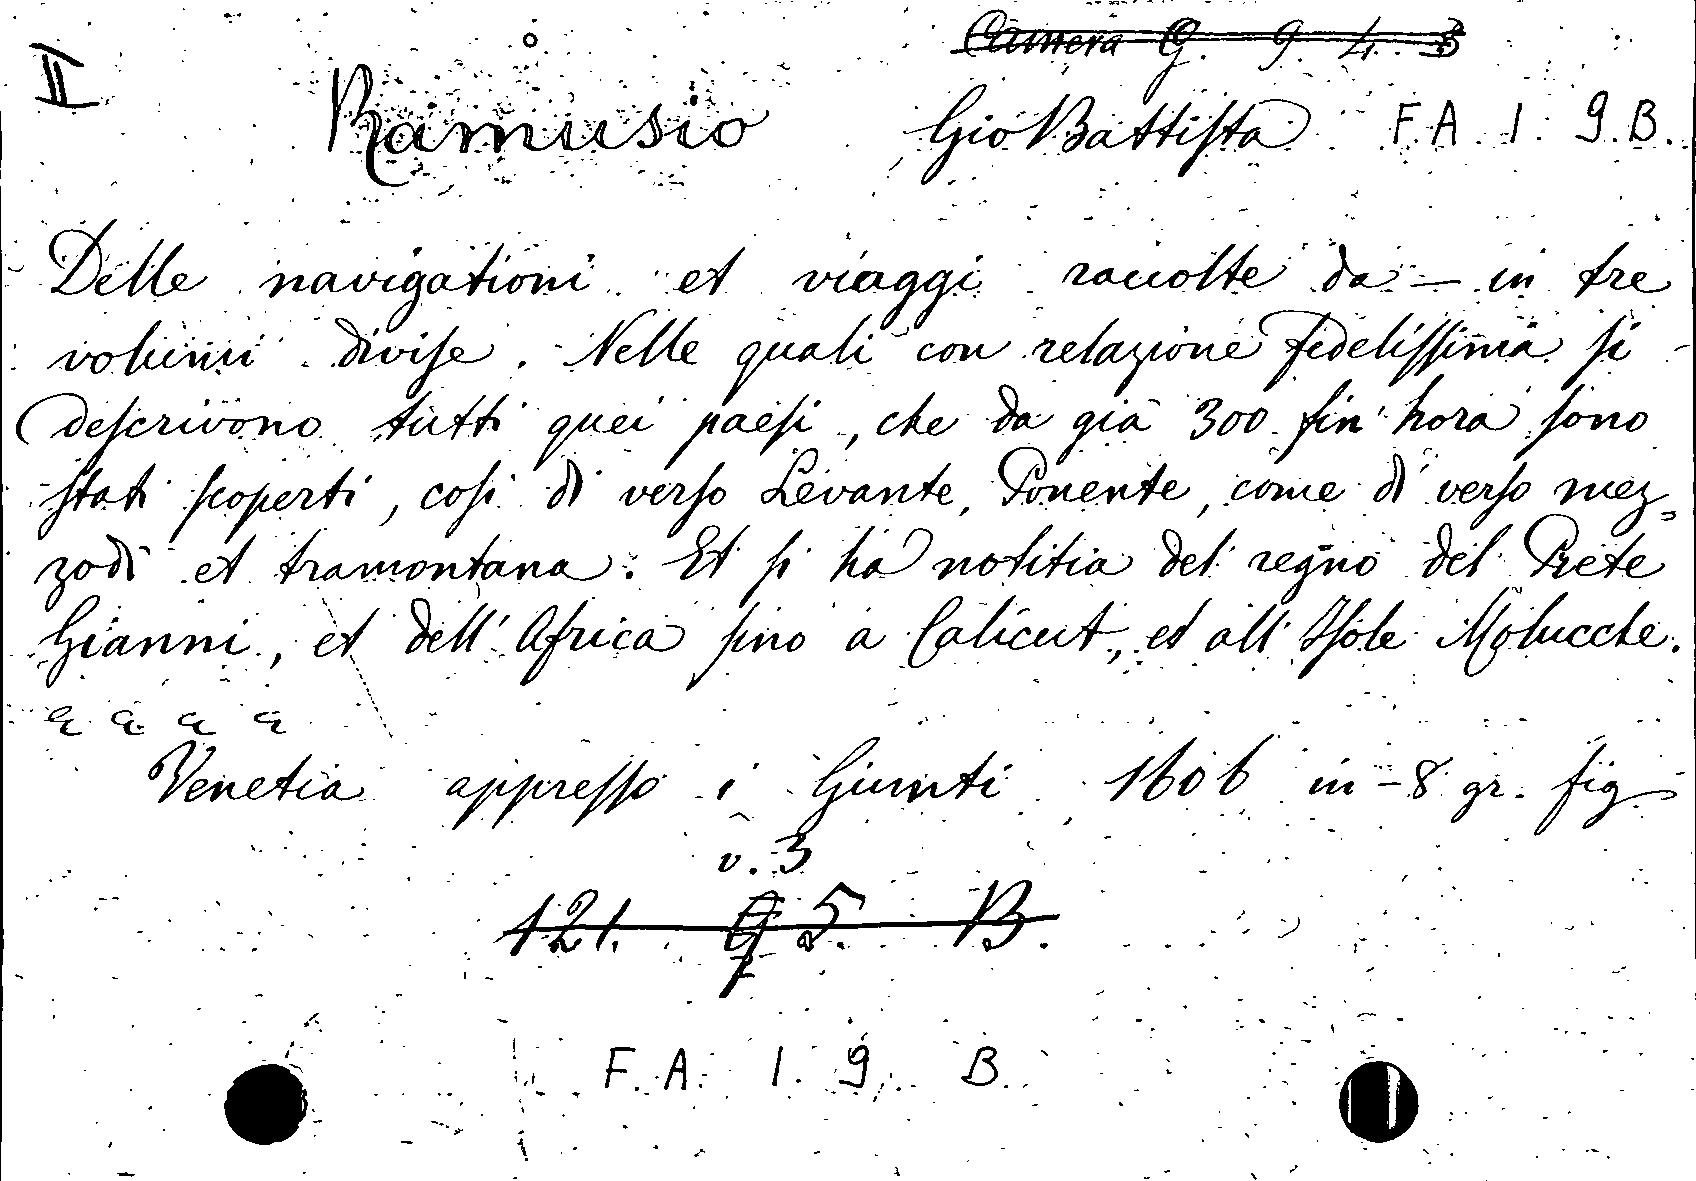 Camera G. 9. 4. 3
II
Ramusio GioBattista F. A. I. 9. B.
Delle navigationi et viaggi raccolte da — in tre
volumi divise. Nelle quali con relazione fidelissima si
descrivono tutti quei paesi, che da già 300 fin' hora sono
stati scoperti, cosi di verso Levante, Ponente, come di verso mez=
zodi et tramontana. Et si ha notitia del regno del Prete
Gianni, et dell' Africa sino a Calicut, et all' Isole Molucche.
Venetia appresso i Giunti 1606 in-8 gr. fig.
v. 3
121. 5. B.
F. A. I. 9. B.